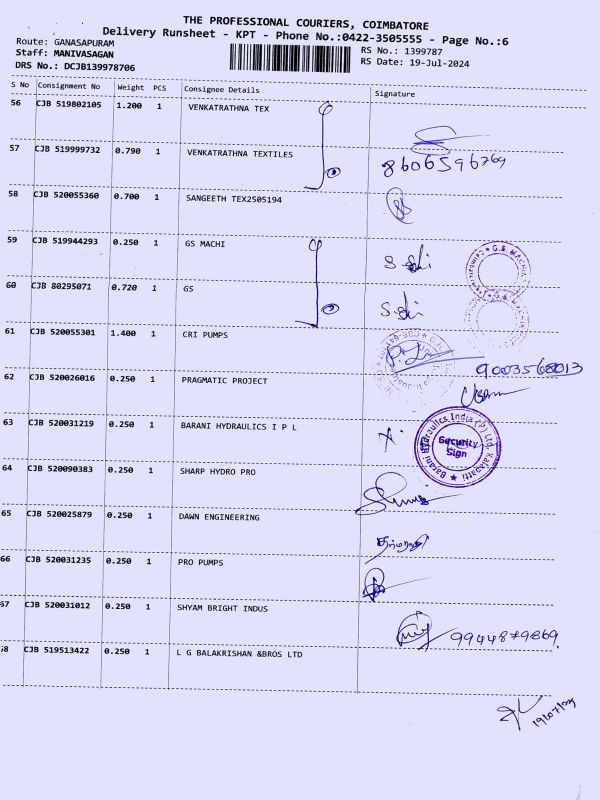 THE PROFESSIONAL COURIERS, COIMBATORE
Delivery Runsheet - KPT - Phone No.:0422-3505555 - Page No.:6
Route: GANASAPURAM
RS No.: 1399787
Staff: MANIVASAGAN
RS Date: 19-Jul-2024
DRS No.: DCJB139978706
S No Consignment No Weight PCS Consignee Details Signature
56 CJB 519802105 1.200 1 VENKATRATHNA TEX
57 CJB 519999732 0.790 1 VENKATRATHNA TEXTILES 8606596769
58 CJB 520055360 0.700 1 SANGEETH TEX2505194
59 CJB 519944293 0.250 1 GS MACHI
60 CJB 80295071 0.720 1 GS
61 CJB 520055301 1.400 1 CRI PUMPS
62 CJB 520026016 0.250 1 PRAGMATIC PROJECT 9003568013
63 CJB 520031219 0.250 1 BARANI HYDRAULICS I P L
Barani Hydraulics India (P) Ltd. Kalapatti
Security
Sign
64 CJB 520090383 0.250 1 SHARP HYDRO PRO
65 CJB 520025879 0.250 1 DAWN ENGINEERING
66 CJB 520031235 0.250 1 PRO PUMPS
67 CJB 520031012 0.250 1 SHYAM BRIGHT INDUS 9944879869
68 CJB 519513422 0.250 1 L G BALAKRISHAN &BROS LTD